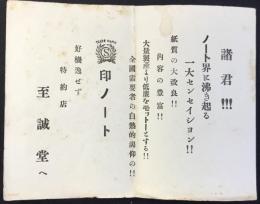 諸君!!!
ノート界に沸き起る
一大センセイション!!
紙質の大改良!!
内容の豊富!!
大量製産より低廉をモットーとする!!
全國需要者の白熱的満仰の!!
TRADE MARK
S
印ノート
好機逸せず
特約店
至誠堂へ